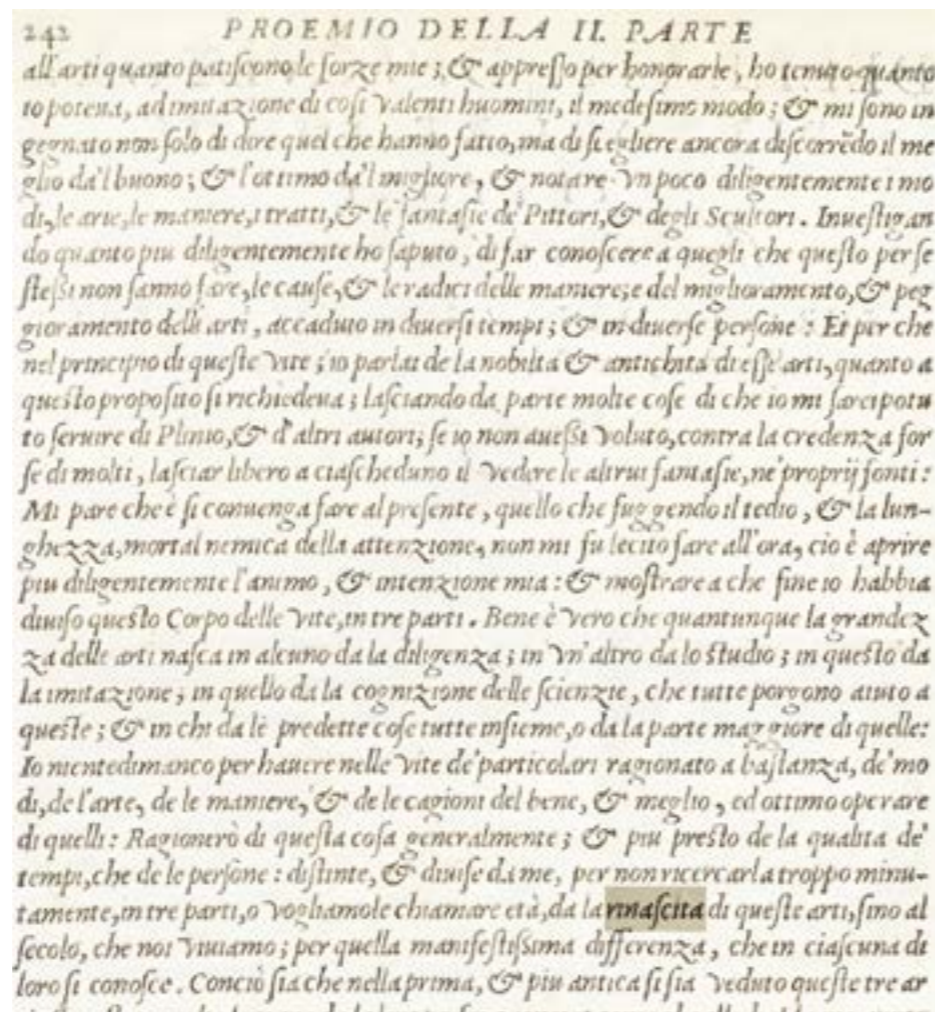 242 PROEMIO DELLA II. PARTE
all'arti quanto patiſcono le forze mie; & appreſſo per honorarle, ho tenuto quanto
io poteua, ad imitazione di coſi valenti huomini, il medeſimo modo; & mi ſono in
gegnato non ſolo di dire quel che hanno fatto, ma di ſcegliere ancora diſcorrẽdo il me
glio da'l buono; & l'ottimo da'l migliore, & notare vn poco diligentemente i mo
di, le arie, le maniere, i tratti, & le fantaſie de' Pittori, & degli Scultori. Inueſtigan
do quanto piu diligentemente ho ſaputo, di far conoſcere a quegli che queſto per ſe
ſteſsi non ſanno fare, le cauſe, & le radici delle maniere, e del miglioramento, & peg
gioramento delle arti, accaduto in diuerſi tempi; & in diuerſe perſone: Et per che
nel principio di queſte vite; io parlai de la nobilta & antichità di eſſe arti, quanto a
queſto propoſito ſi richiedeua; laſciando da parte molte coſe di che io mi ſarei potu
to ſeruire di Plinio, & d'altri autori; ſe io non aueſsi voluto, contra la credenza for
ſe di molti, laſciar libero a ciaſcheduno il vedere le altrui fantaſie, ne' proprij fonti:
Mi pare che è ſi conuenga fare al preſente, quello che fuggendo il tedio, & la lun-
ghezza, mortal nemica della attenzione, non mi fu lecito fare all'ora, cio è aprire
piu diligentemente l'animo, & intenzione mia: & moſtrare a che fine io habbia
diuiſo queſto Corpo delle vite, in tre parti. Bene è vero che quantunque la grandez
za delle arti naſca in alcuno da la diligenza; in vn'altro da lo ſtudio; in queſto da
la imitazione; in quello da la cognizione delle ſcienzie, che tutte porgono aiuto a
queſte; & in chi da le predette coſe tutte inſieme, o da la parte maggiore di quelle:
Io nientedimanco per hauere nelle vite de' particolari ragionato a baſtanza, de' mo
di, de l'arte, de le maniere, & de le cagioni del bene, & meglio, ed ottimo operare
di quelli: Ragionerò di queſta coſa generalmente; & piu preſto de la qualita de'
tempi, che de le perſone: diſtinte, & diuiſe da me, per non ricercarla troppo minu-
tamente, in tre parti, o vogliamole chiamare età, da la rinaſcita di queſte arti, ſino al
ſecolo, che noi viuiamo; per quella manifeſtiſsima differenza, che in ciaſcuna di
loro ſi conoſce. Conciò ſia che nella prima, & piu antica ſi ſia veduto queſte tre ar